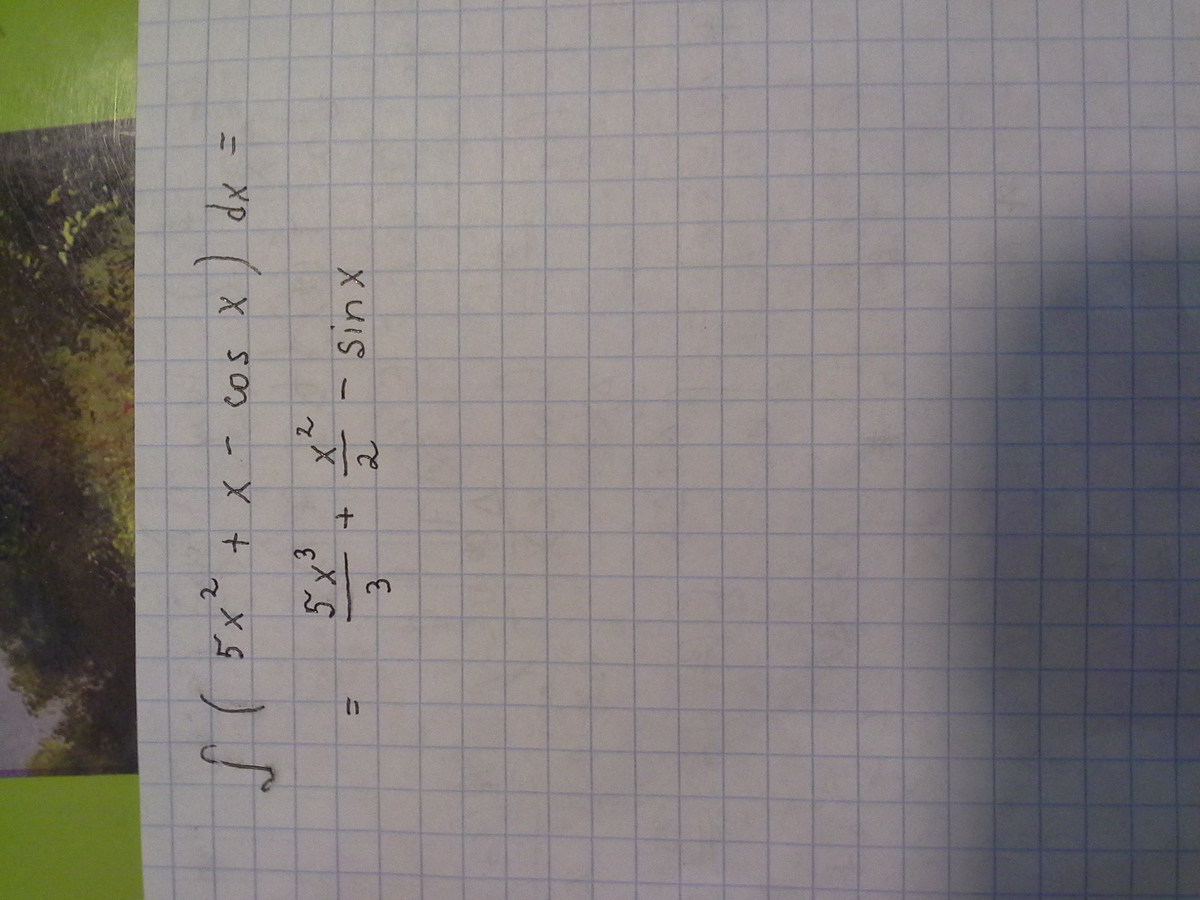 ∫ (5x² + x - cos x) dx =
= 5x³/3 + x²/2 - sin x